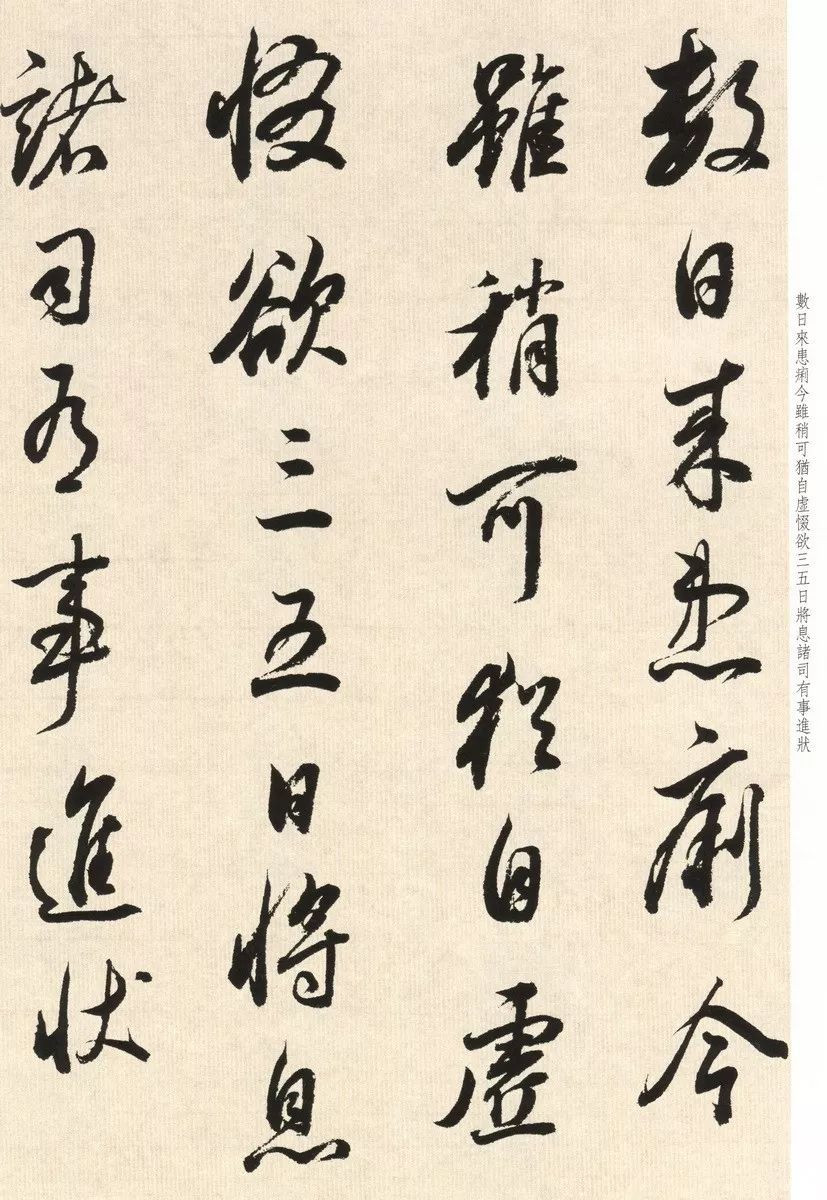 數日来患痢今
雖稍可猶自虛
惙欲三五日將息
諸司有事進狀
數日來患痢今雖稍可猶自虛惙欲三五日將息諸司有事進狀